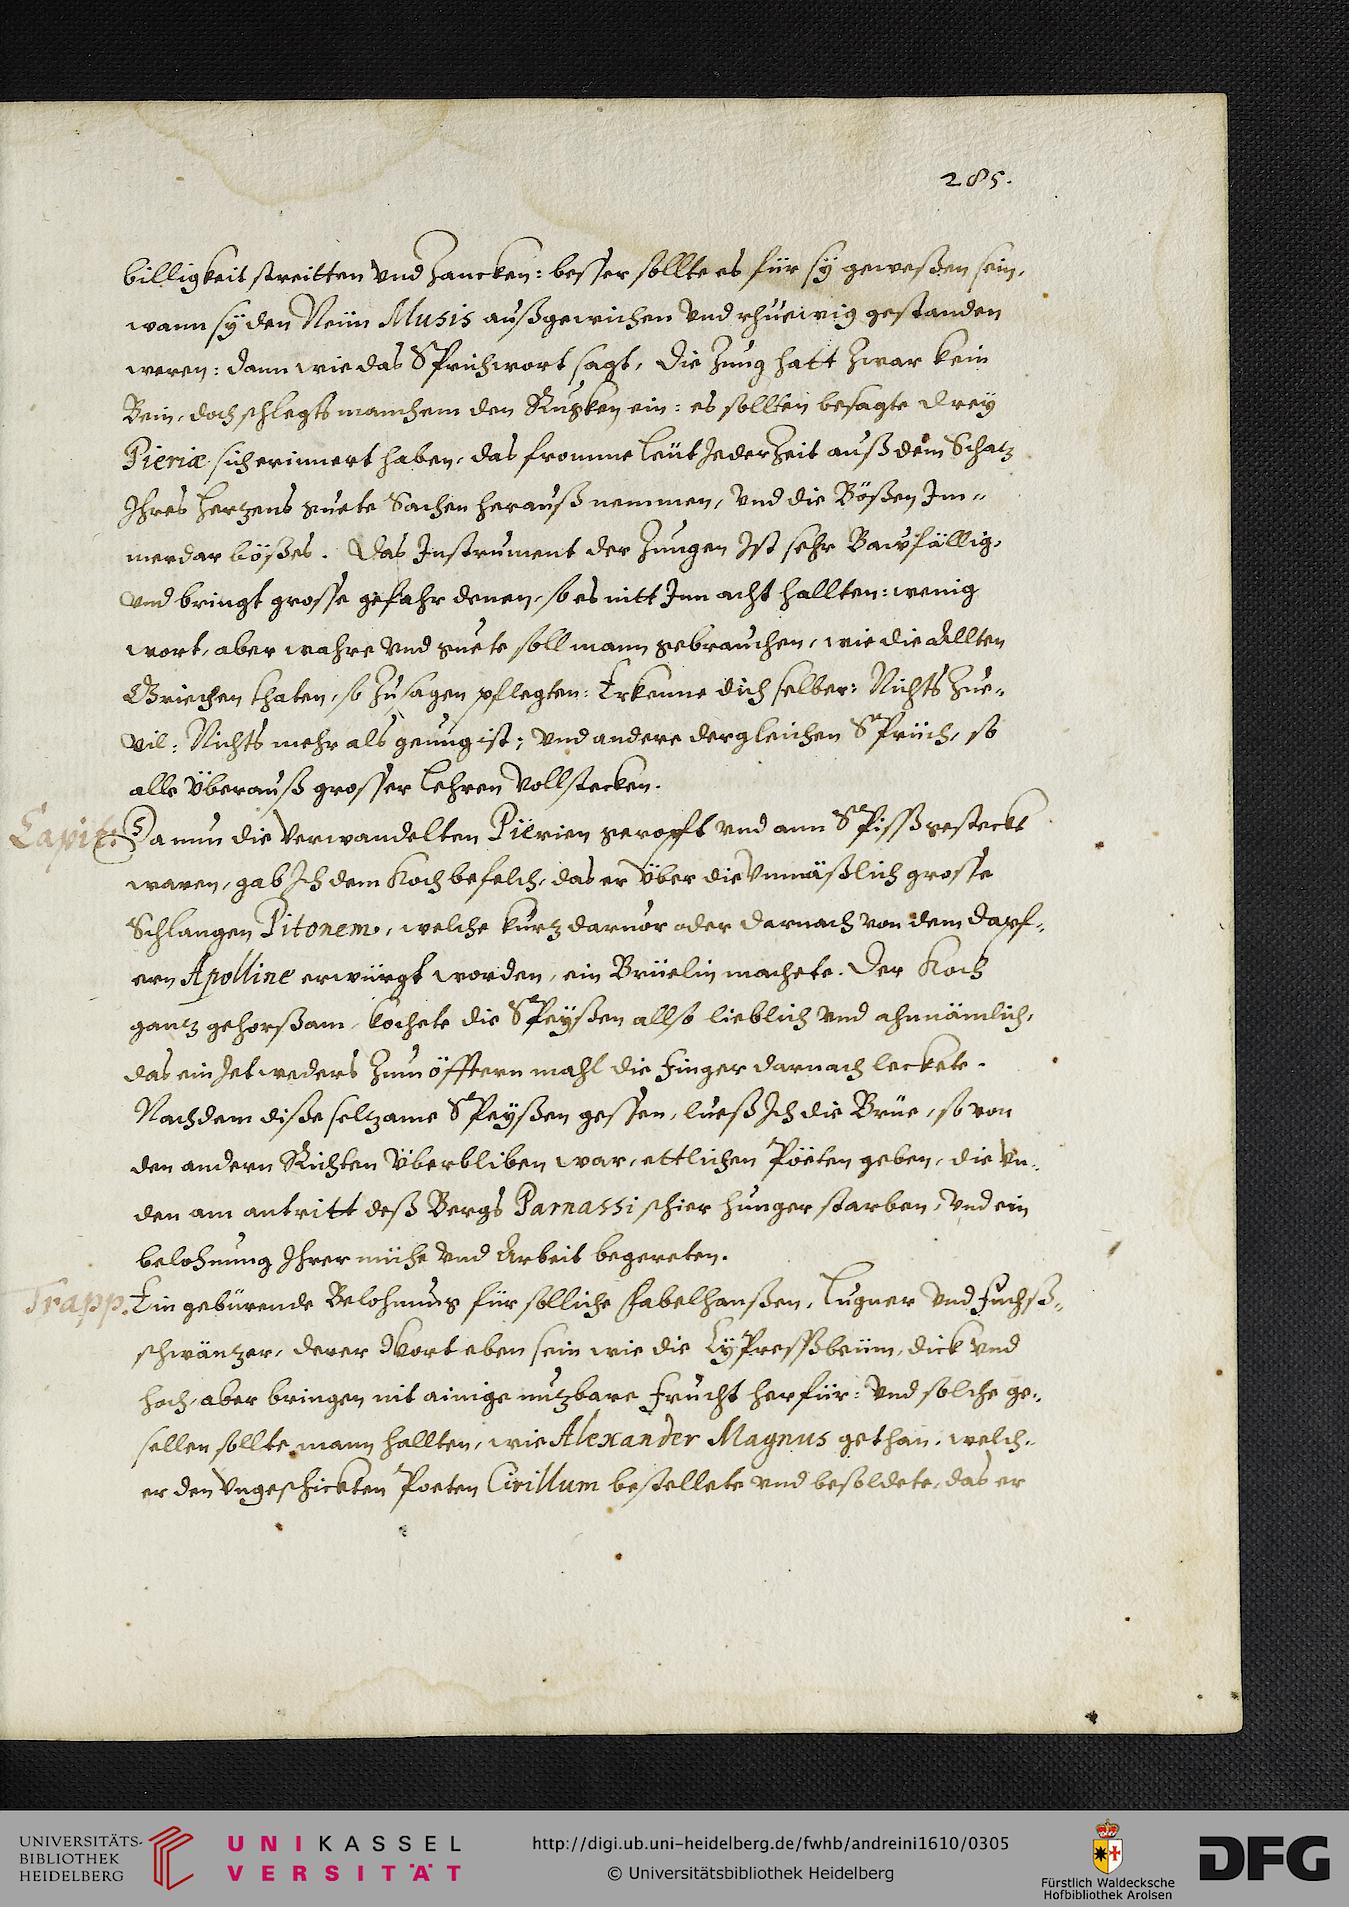 285.
billigkeit streitten vnd Zancken: besser sollte es für sÿ geweßen sein,
wann sÿ den Neün Musis außgewichen vnd rhuewig gestanden
weren: dann wie das SPrichwort sagt, die Zung hatt Zwar kein
Bein, doch schlegts manchem den Rugken ein: es sollten besagte dreÿ
Pieriæ sich erinnert haben, das fromme leüt Jeder Zeit auß dem Schatz
Jhres hertzens guete Sachen herauß nemmen, vnd die Bößen Im„
merdar bößes. Das Instrument der Zungen Ist sehr Bawfällig,
vnd bringt grosse gefahr denen, so es nitt Jnn acht hallten: wenig
wort, aber wahre vnd guete soll mann gebrauchen, wie die Allten
Griechen thaten, so Zu sagen pflegten: Erkenne dich selber: Nichts Zue„
vil: Nichts mehr als genug ist: vnd andere dergleichen SPrüch, so
alle überauß grosser lehren vollstecken.
Capit: Da nun die verwandelten Pierien geropft vnd ann SPisß gesteckt
waren, gab Ich dem Koch befelch, das er über die vnmäßlich grosse
Schlangen Pitonem, welche kurtz daruor oder darnach von dem dapf„
ern Apolline erwürgt worden, ein Brüelin machete. Der Koch
gantz gehorßam, kochete die SPeÿßen allso lieblich vnd ahnnämlich,
das ein Jetweders Zum öfftern mahl die Finger darnach leckete.
Nachdem diße seltzame SPeÿßen gessen, ließ Ich die Brüe, so von
den andern Richten überbliben war, ettlichen Pöeten geben, die vn„
den am antritt deß Bergs Parnassi schier hunger starben, vnd ein
belohnung Jhrer mühe vnd Arbeit begereten.
Trapp. Ein gebürende Belohnung für solliche Fabelhanßen, Lugner vnd Fuchsß„
schwäntzer, derer Wort eben sein wie die CÿPresßbeüm, dick vnd
hoch, aber bringen nit ainige nutzbare Frucht herfür: vnd solche ge„
sellen sollte mann hallten, wie Alexander Magnus gethan, welch„
er den vngeschickten Poeten Cirillum bestellete vnd besoldete, das er
UNIVERSITÄTS-
BIBLIOTHEK
HEIDELBERG
UNIKASSEL
VERSITÄT
http://digi.ub.uni-heidelberg.de/fwhb/andreini1610/0305
© Universitätsbibliothek Heidelberg
Fürstlich Waldecksche
Hofbibliothek Arolsen
DFG